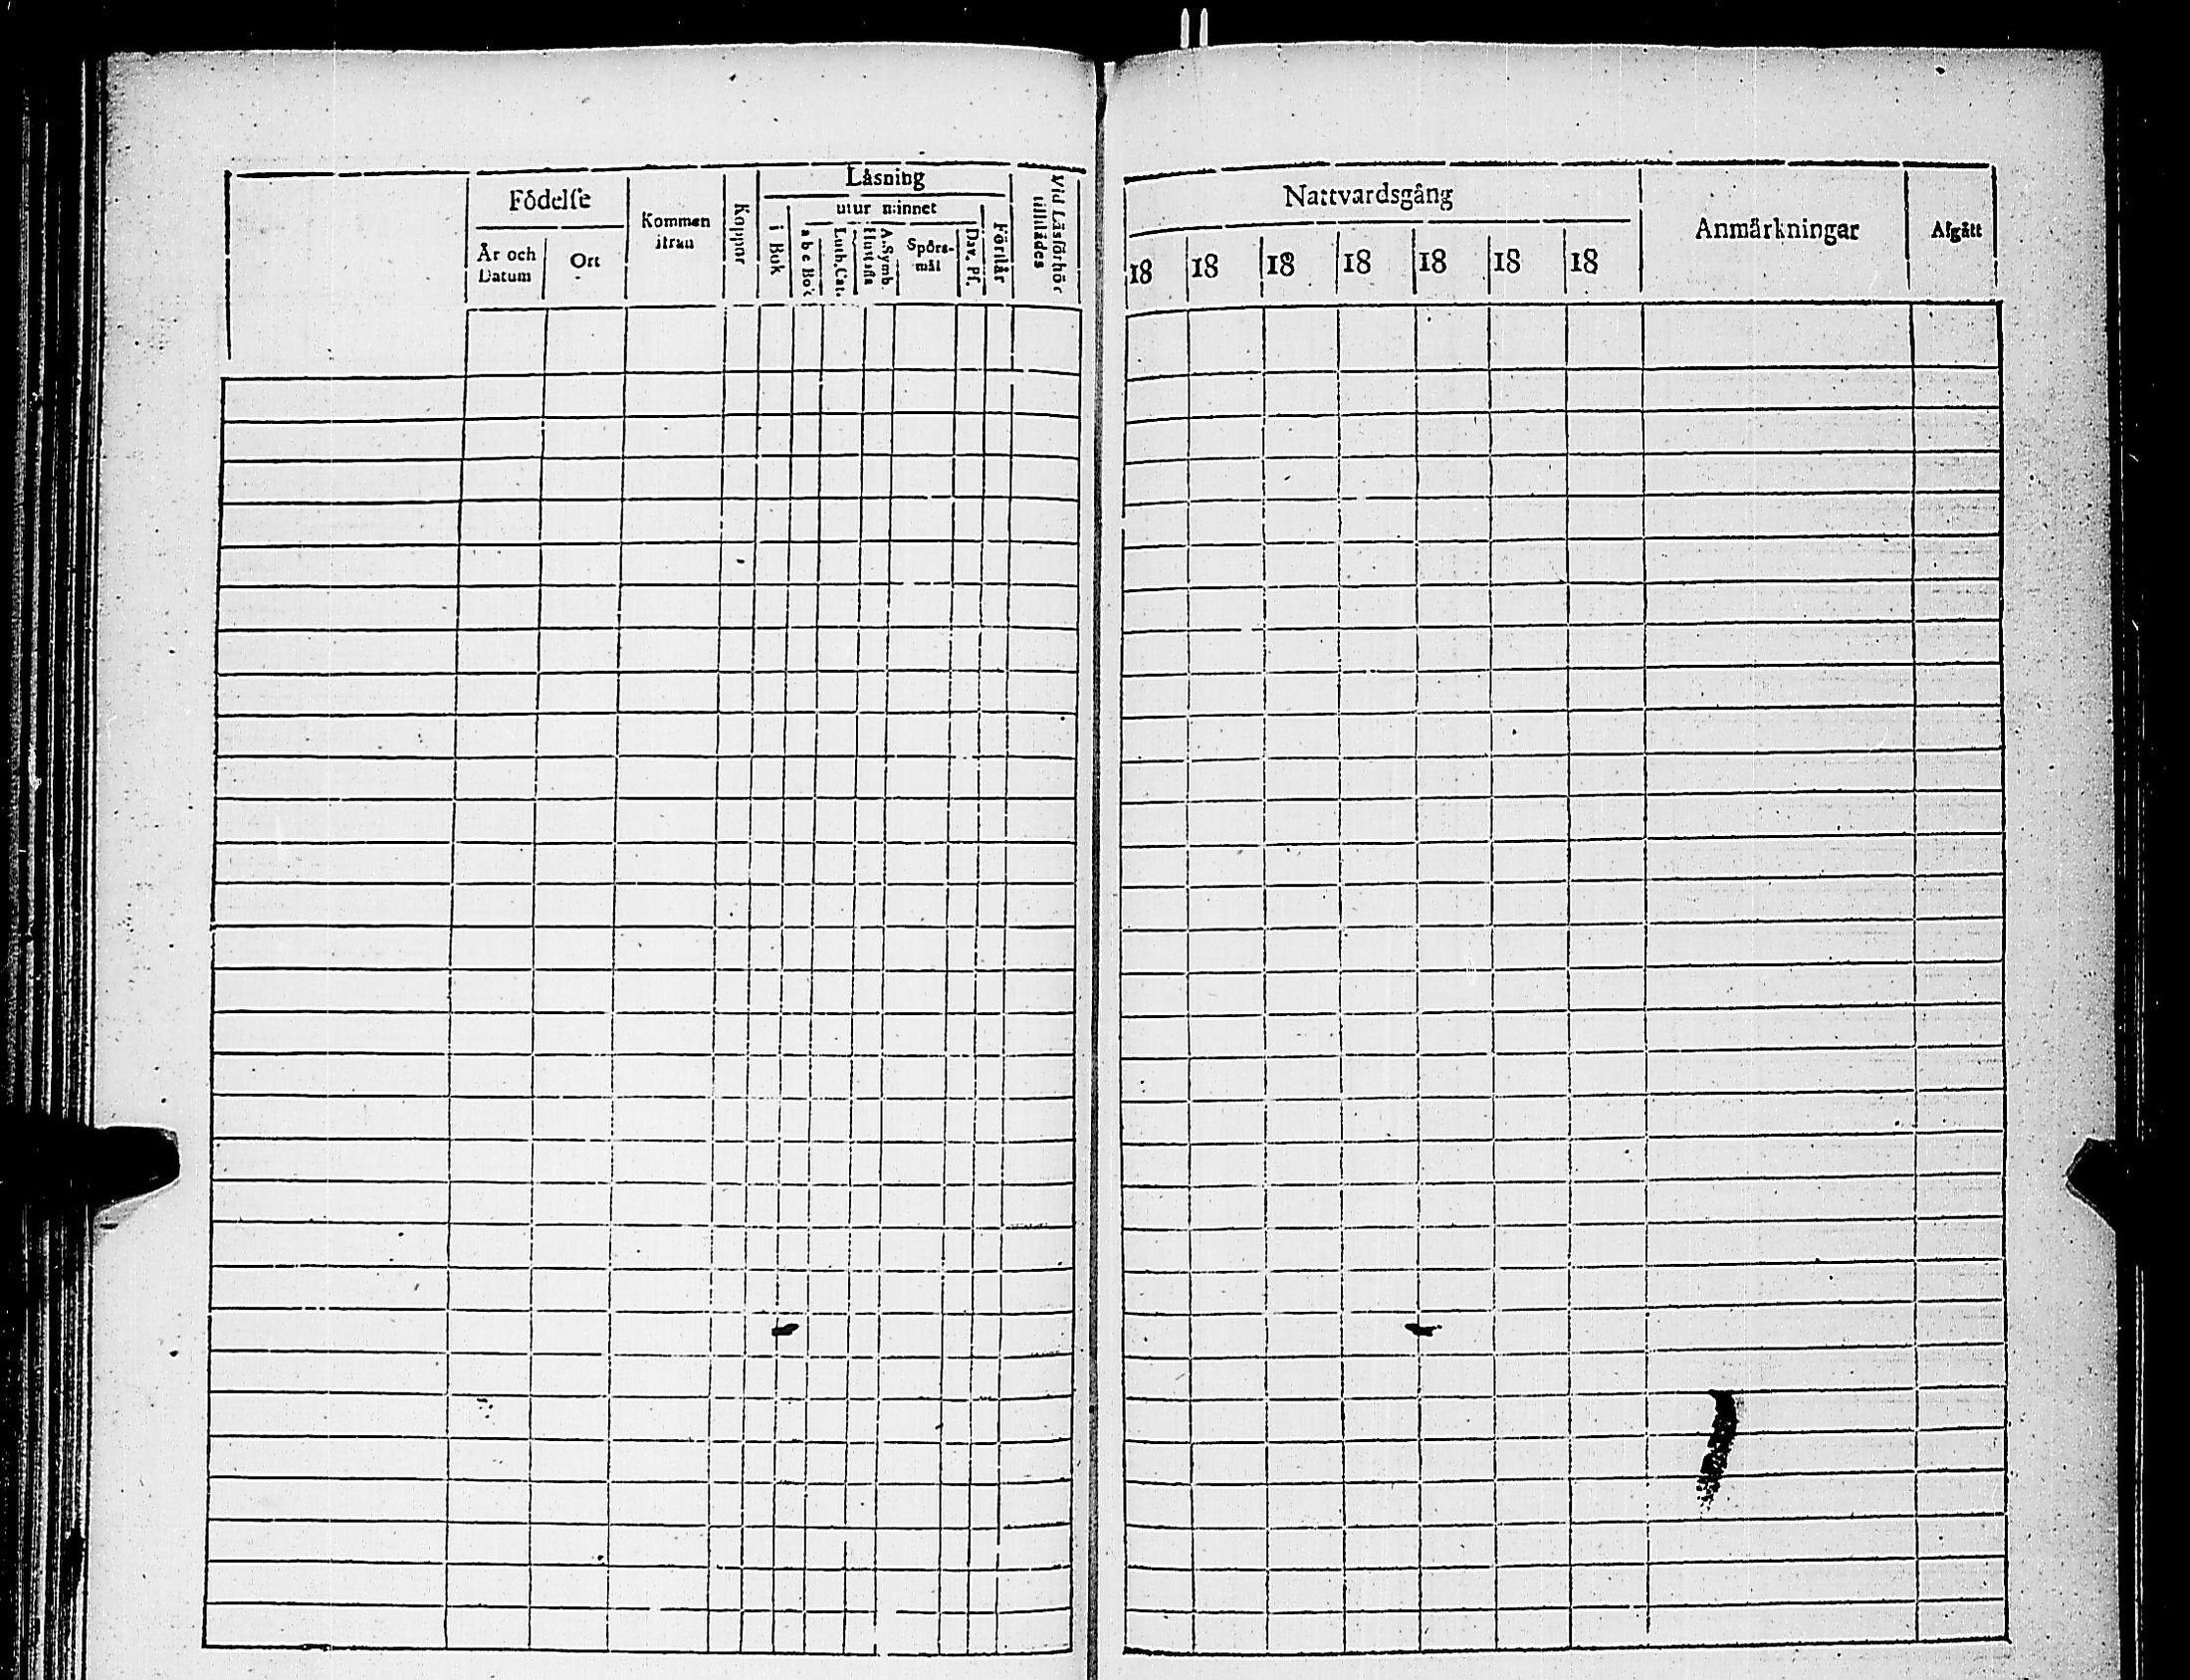 Födelse
År och Datum
Ort
Kommen ifrån
Koppor
Läsning
utur minnet
i Bok
a b c Bok
Luth. Cat.
Hustafla
A. Symb.
Spörs-
mål
Dav. Ps.
Förstår
Vid Läsförhör
tillstädes
Nattvardsgång
18 18 18 18 18 18 18
Anmärkningar
Afgått